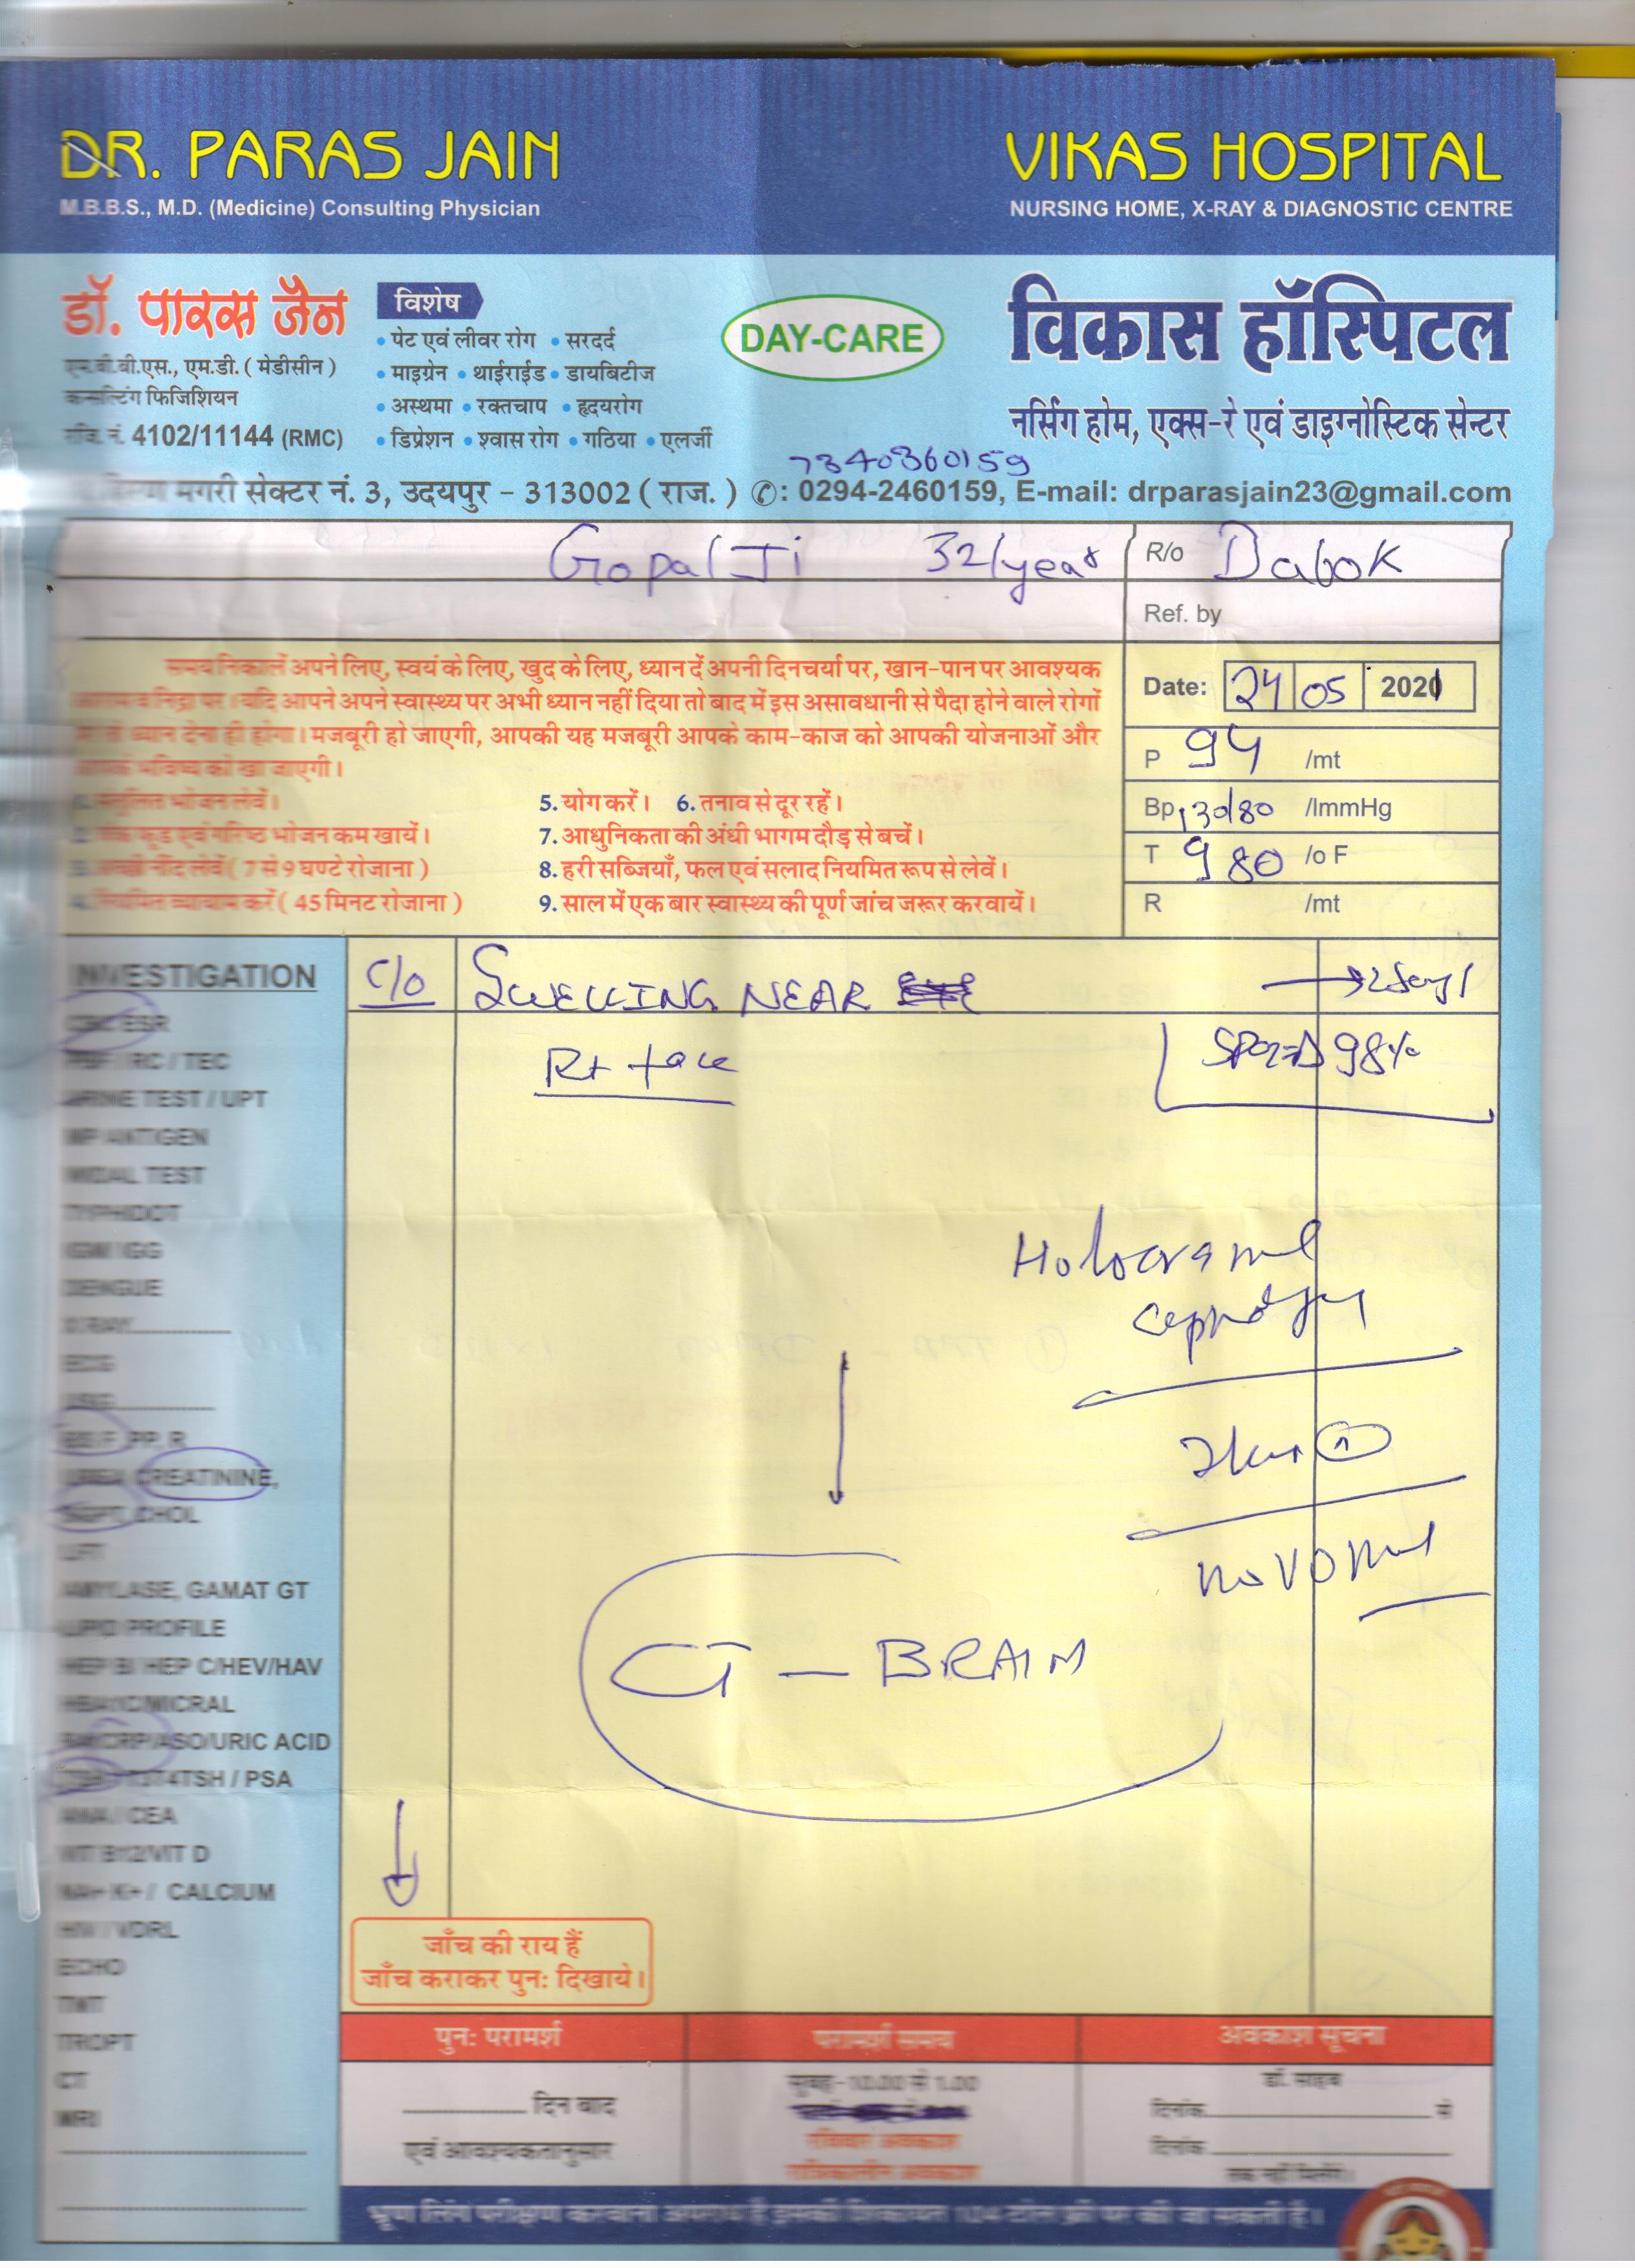 DR. PARAS JAIN
M.B.B.S., M.D. (Medicine) Consulting Physician
VIKAS HOSPITAL
NURSING HOME, X-RAY & DIAGNOSTIC CENTRE
डॉ. पारस जैन
एम.बी.बी.एस., एम.डी. ( मेडीसीन )
कन्सल्टिंग फिजिशियन
रजि. नं. 4102/11144 (RMC)
विशेष
• पेट एवं लीवर रोग • सरदर्द
• माइग्रेन • थाईराईड • डायबिटीज
• अस्थमा • रक्तचाप • हृदयरोग
• डिप्रेशन • श्वास रोग • गठिया • एलर्जी
DAY-CARE
विकास हॉस्पिटल
नर्सिंग होम, एक्स-रे एवं डाइग्नोस्टिक सेन्टर
7340360159
मगरी सेक्टर नं. 3, उदयपुर - 313002 ( राज. ) ✆: 0294-2460159, E-mail: drparasjain23@gmail.com
Gopal Ji 32/year R/o Dabok
Ref. by
समय निकालें अपने लिए, स्वयं के लिए, खुद के लिए, ध्यान दें अपनी दिनचर्या पर, खान-पान पर आवश्यक
व निद्रा पर। यदि आपने अपने स्वास्थ्य पर अभी ध्यान नहीं दिया तो बाद में इस असावधानी से पैदा होने वाले रोगों
ध्यान देना ही होगा। मजबूरी हो जाएगी, आपकी यह मजबूरी आपके काम-काज को आपकी योजनाओं और
आपके भविष्य को खा जाएगी।
1. संतुलित भोजन लेवें।
2. फूड एवं गरिष्ठ भोजन कम खायें।
3. अच्छी नींद लेवें ( 7 से 9 घण्टे रोजाना )
4. नियमित व्यायाम करें ( 45 मिनट रोजाना )
5. योग करें। 6. तनाव से दूर रहें।
7. आधुनिकता की अंधी भागम दौड़ से बचें।
8. हरी सब्जियाँ, फल एवं सलाद नियमित रूप से लेवें।
9. साल में एक बार स्वास्थ्य की पूर्ण जांच जरूर करवायें।
Date: 24 05 2021
P 94 /mt
Bp 130/80 /ImmHg
T 980 /o F
R /mt
INVESTIGATION
CBC ESR
PBF / RC / TEC
URINE TEST / UPT
MP ANTIGEN
WIDAL TEST
TYPHIDOT
IGM/ IGG
DENGUE
X RAY
ECG
USG
BS/F, PP, R
UREA CREATININE,
SGPT, CHOL
LFT
AMYLASE, GAMAT GT
LIPID PROFILE
HEP B/ HEP C/HEV/HAV
HBA1C/MICRAL
RA/CRP/ASO/URIC ACID
T3T4TSH / PSA
ANA / CEA
VIT B12/VIT D
NA+ K+ / CALCIUM
HIV / VDRL
ECHO
TMT
TROPT
CT
MRI
C/O SWELLING NEAR → 2 days
Rt face
SPO2 98%
Holocranial
CT – BRAIN
जाँच की राय हैं
जाँच कराकर पुनः दिखाये।
पुनः परामर्श
दिन बाद
एवं आवश्यकतानुसार
परामर्श समय
सुबह - 10.00 से 1.00
रविवार अवकाश
रात्रिकालीन अवकाश
अवकाश सूचना
डॉ. साहब
दिनांक से
दिनांक
तक नहीं मिलेंगे।
भ्रूण लिंग परीक्षण करवाना अपराध है इसकी शिकायत 104 टोल फ्री पर की जा सकती है।